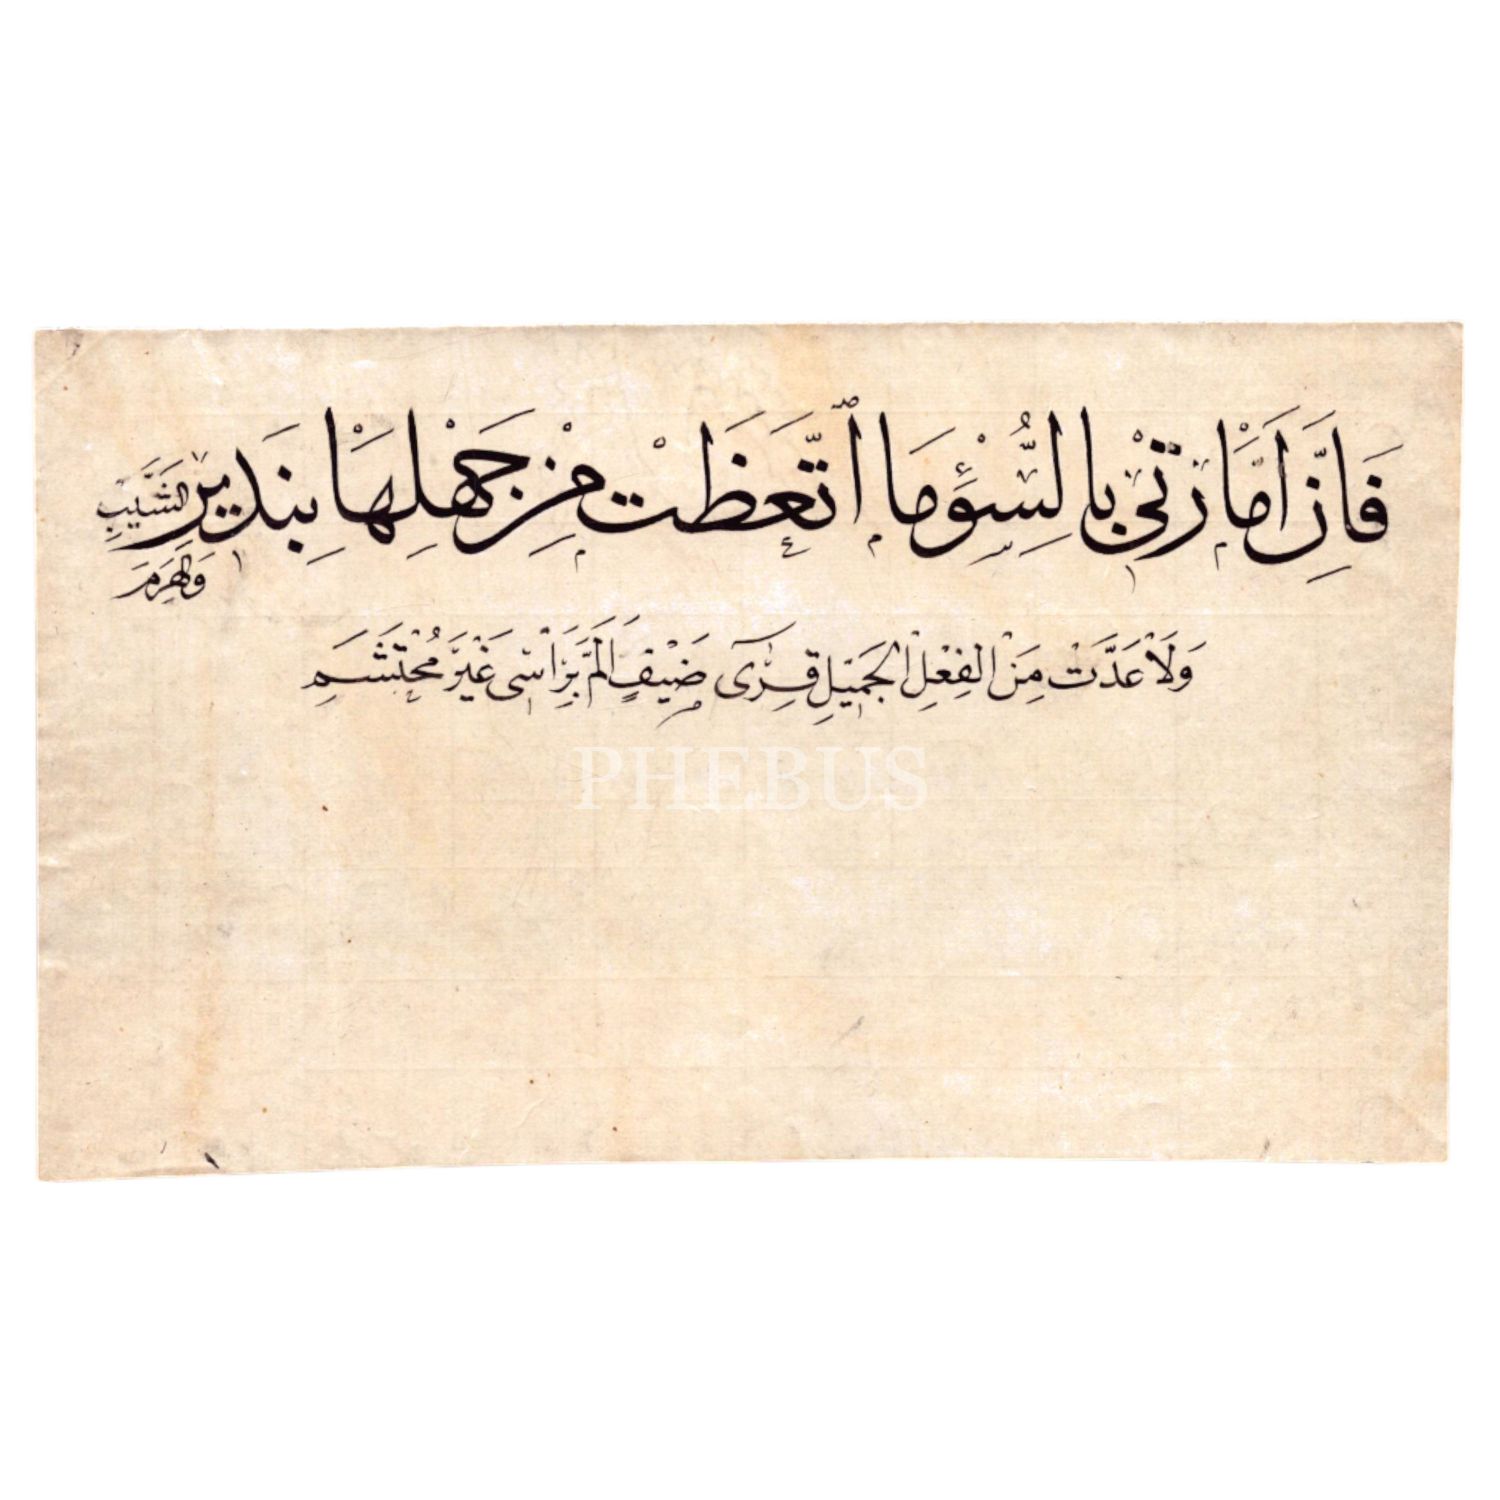 فَاِنَّ اَمَّارَتِي بِالسُّوءِ مَا اتَّعَظَتْ مِنْ جَهْلِهَا بِنَذِيرِ الشَّيْبِ
وَالهَرَمِ
وَلَا عَدَّتْ مِنَ الْفِعْلِ الْجَمِيلِ قِرٰى ضَيْفٍ اَلَمَّ بِرَاْسِى غَيْرَ مُحْتَشَمِ
PHEBUS